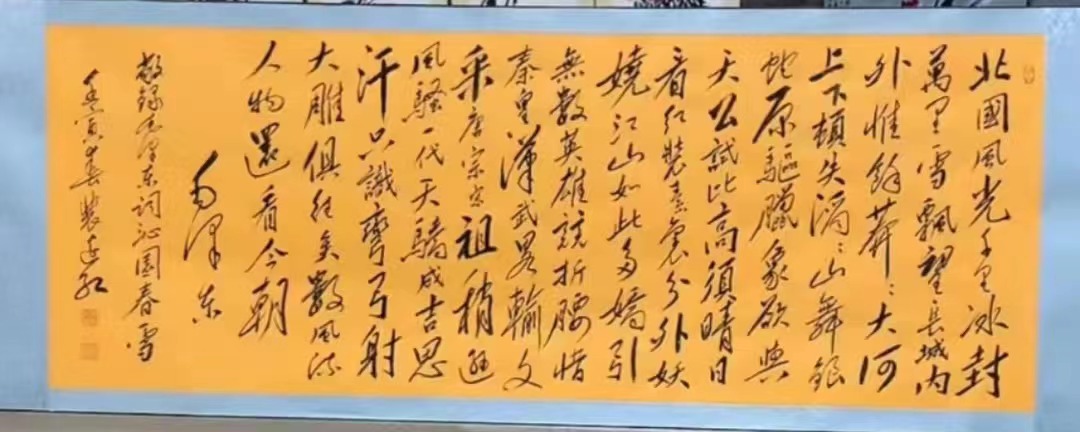 北國風光千里冰封
萬里雪飄望長城内
外惟餘莽〻大河
上下頓失滔〻山舞銀
蛇原驅臘象欲與
天公試比高須晴日
看红裝素裹分外妖
嬈江山如此多嬌引
無數英雄競折腰惜
秦皇漢武畧輸文
采唐宗宋祖稍遜
風騷一代天驕成吉思
汗只識彎弓射
大雕俱往矣數風流
人物還看今朝
毛泽东
敬録毛泽东词沁園春雪
壬寅年春